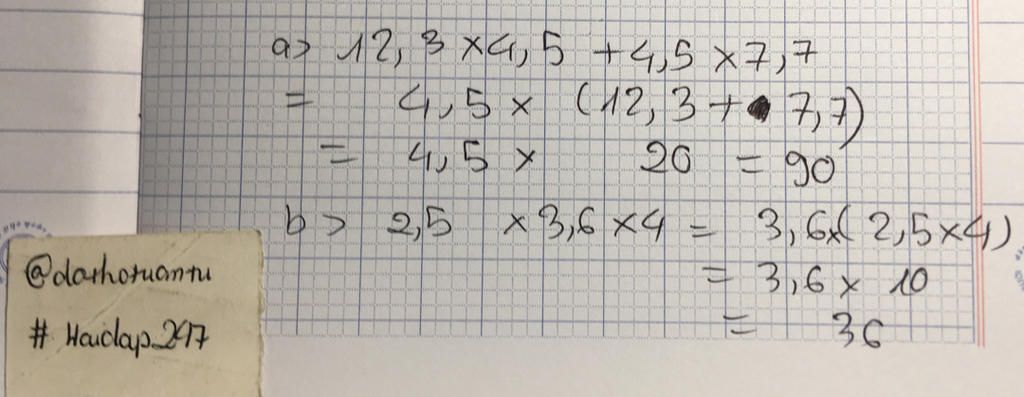 a> 12,3 × 4,5 + 4,5 × 7,7
= 4,5 × (12,3 + 7,7)
= 4,5 × 20 = 90
b> 2,5 × 3,6 × 4 = 3,6 × (2,5 × 4)
= 3,6 × 10
= 36
@dathotuantu
# Haidap_247